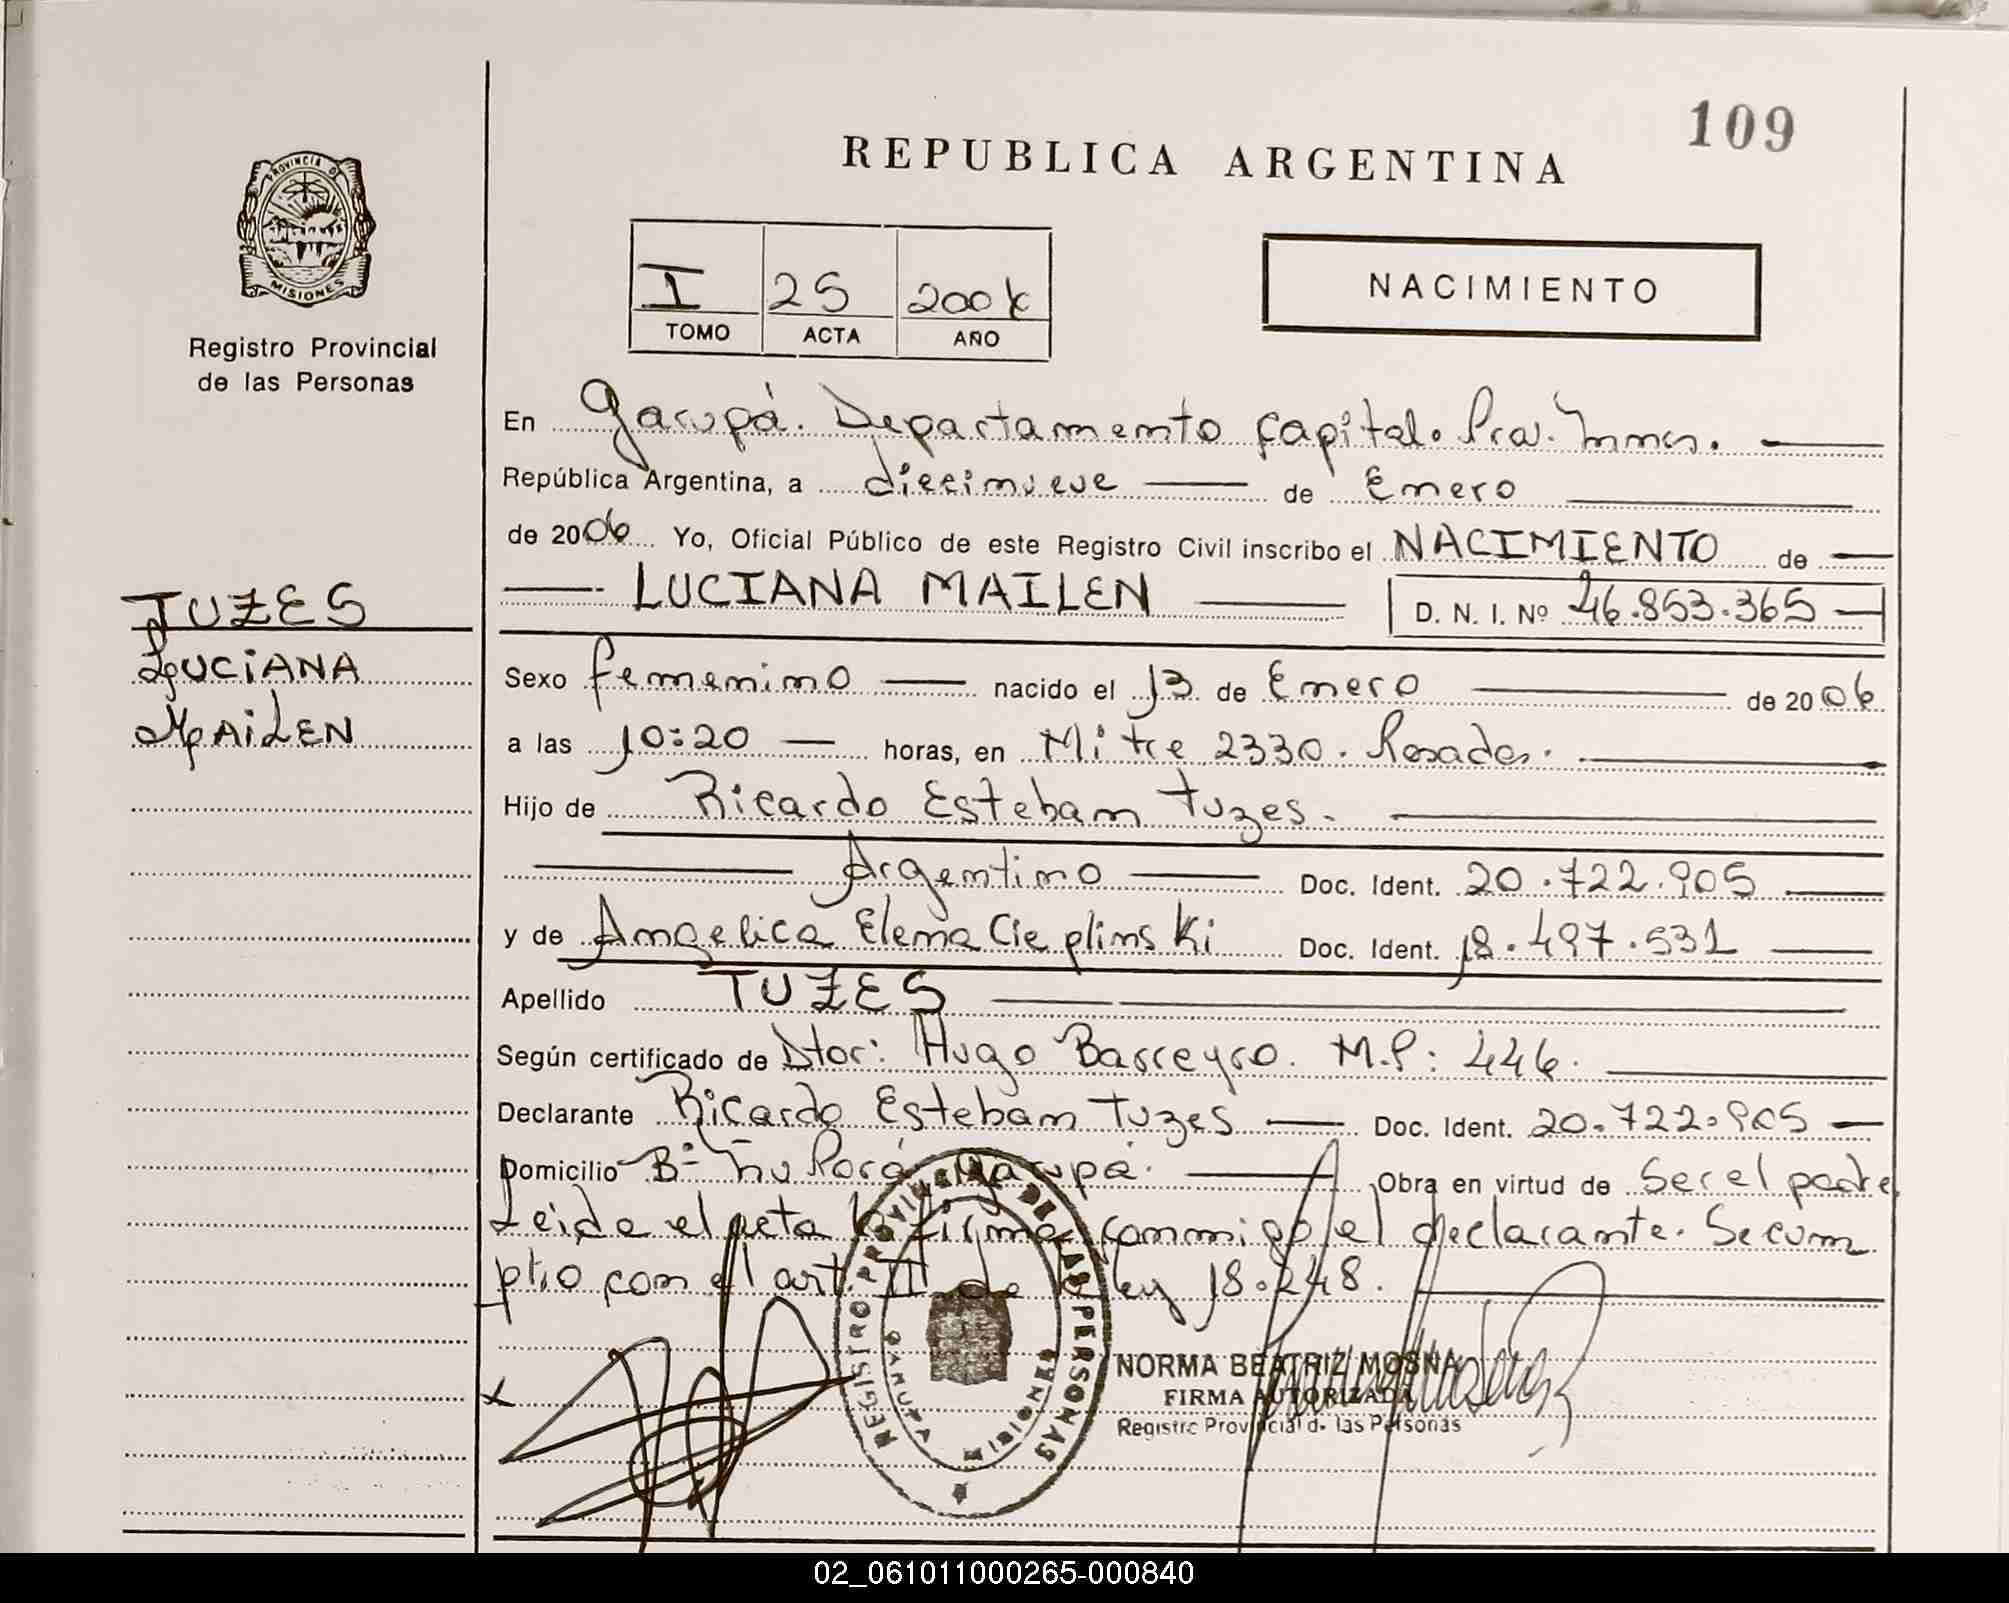 109
REPUBLICA ARGENTINA
PROVINCIA DE
MISIONES
Registro Provincial
de las Personas
I 25 2006
TOMO ACTA AÑO
NACIMIENTO
En Garupá. Departamento Capital. Pcia. Mnes.
República Argentina, a diecinueve de Enero
de 2006 Yo, Oficial Público de este Registro Civil inscribo el NACIMIENTO de
LUCIANA MAILEN D. N. I. Nº 46.853.365
TUZES
LUCIANA
MAILEN
Sexo femenino nacido el 13 de Enero de 2006
a las 10:20 horas, en Mitre 2330. Posadas.
Hijo de Ricardo Esteban Tuzes.
Argentino Doc. Ident. 20.722.905
y de Angelica Elena Cieplinski Doc. Ident. 18.497.531
Apellido TUZES
Según certificado de Dtor: Hugo Barreyro. M.P: 446.
Declarante Ricardo Esteban Tuzes Doc. Ident. 20.722.905
Domicilio Bº Ñu Porá Garupá. Obra en virtud de Ser el padre
Leida el acta la firma conmigo el declarante. Se cum
plio con el art. II de la ley 18.248.
REGISTRO PROVINCIAL DE LAS PERSONAS
GARUPA MISIONES
NORMA BEATRIZ MOSNA
FIRMA AUTORIZADA
Registro Provincial de las Personas
02_061011000265-000840